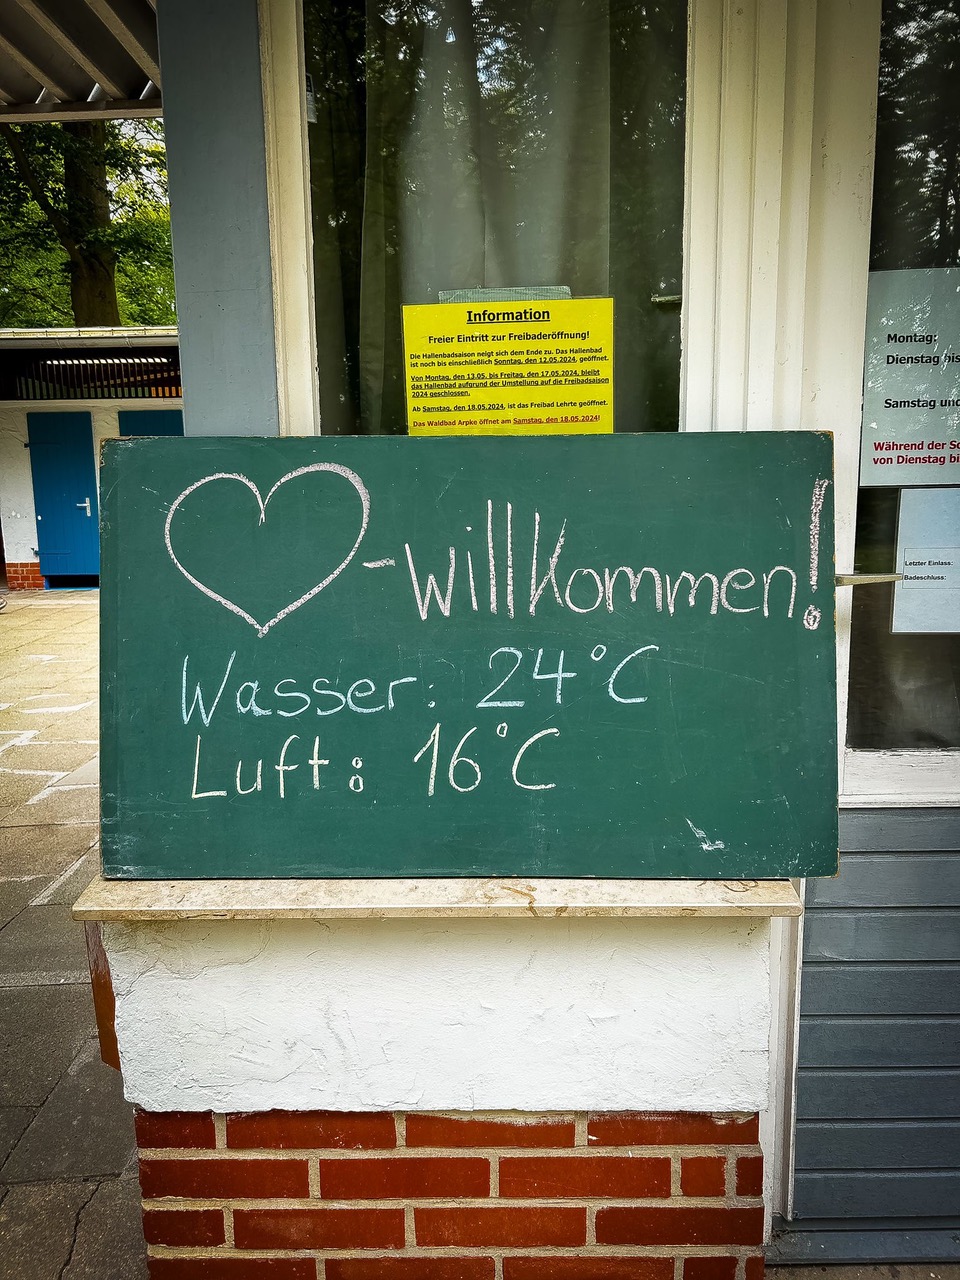 Information
Freier Eintritt zur Freibaderöffnung!
Die Hallenbadsaison neigt sich dem Ende zu. Das Hallenbad
ist noch bis einschließlich Sonntag, den 12.05.2024, geöffnet.
Von Montag, den 13.05. bis Freitag, den 17.05.2024, bleibt
das Hallenbad aufgrund der Umstellung auf die Freibadsaison
2024 geschlossen.
Ab Samstag, den 18.05.2024, ist das Freibad Lehrte geöffnet.
Das Waldbad Arpke öffnet am Samstag, den 18.05.2024!
-willkommen!
Wasser: 24°C
Luft: 16°C
Montag:
Dienstag bis
Samstag und
Während der
von Dienstag
Letzter Einlass:
Badeschluss: